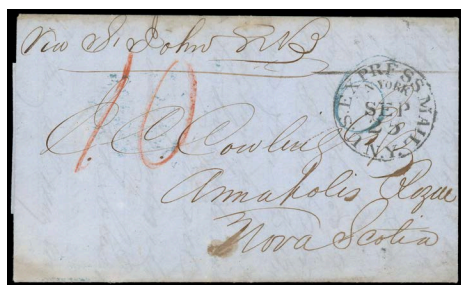 Via St John N.B
10
U.S EXPRESS MAIL
N. YORK
SEP
25
J. C. Cowling
Annapolis
Nova Scotia